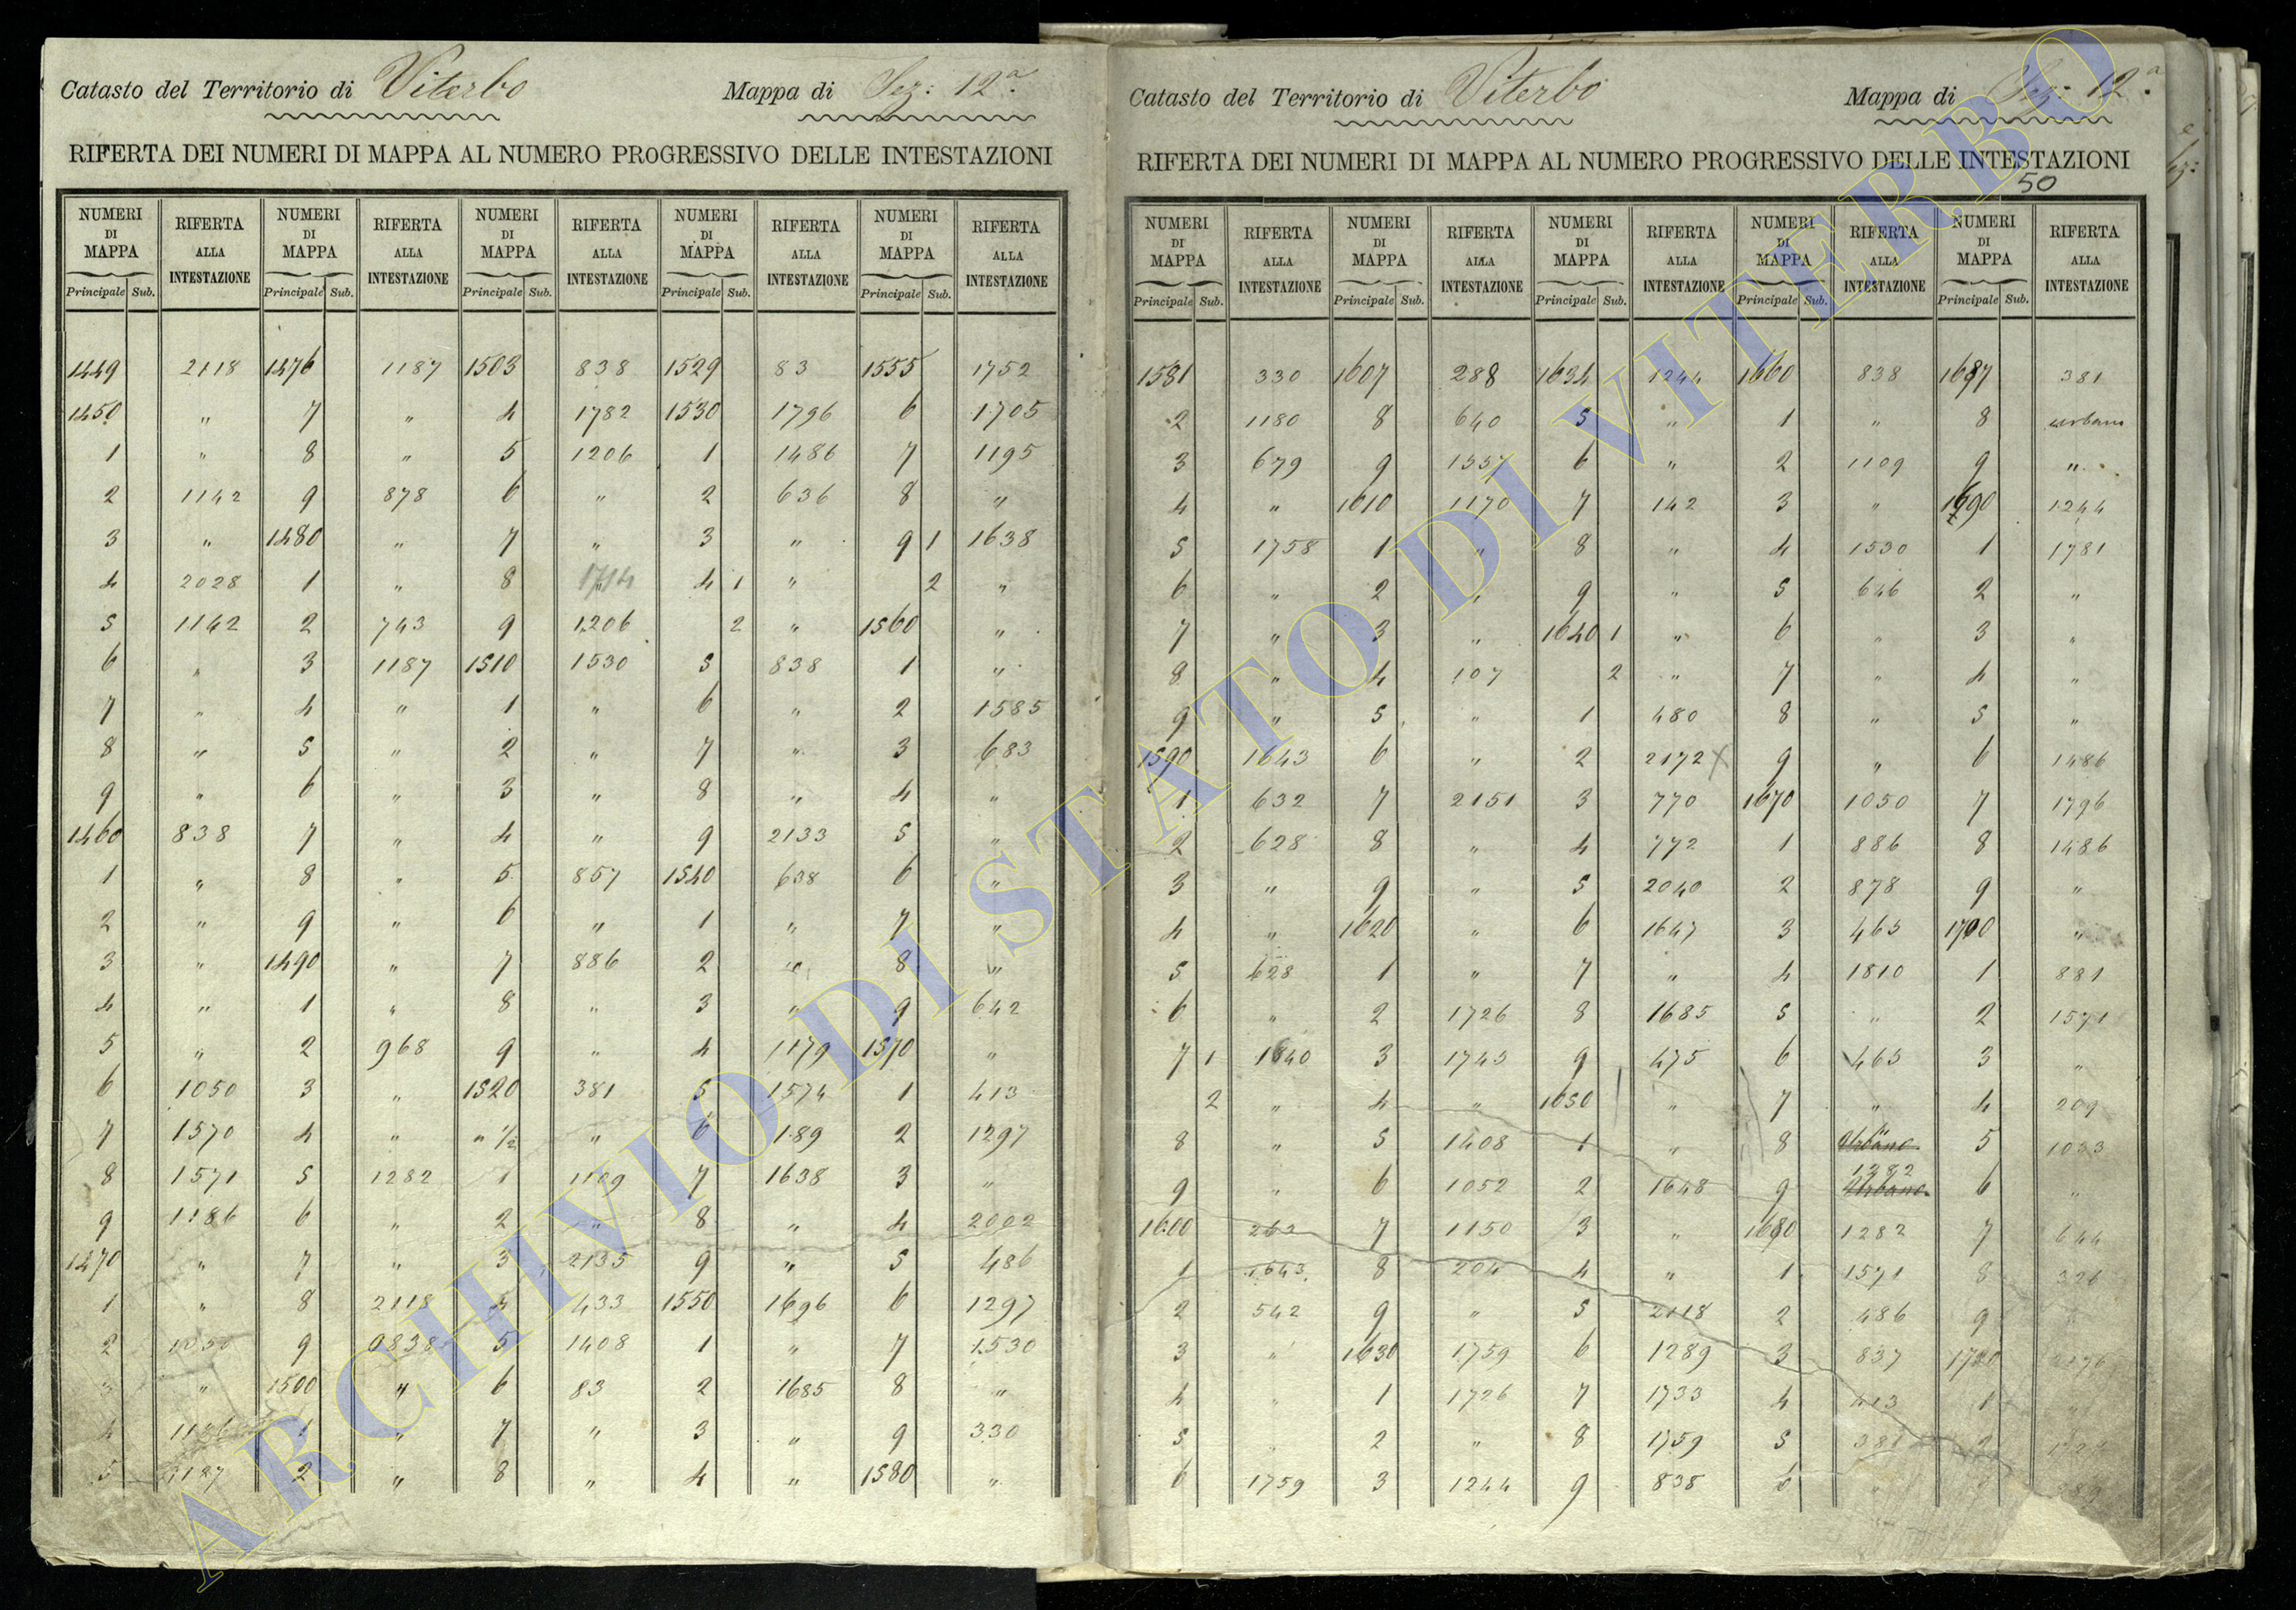 Catasto del Territorio di Viterbo Mappa di Sez: 12ª
RIFERTA DEI NUMERI DI MAPPA AL NUMERO PROGRESSIVO DELLE INTESTAZIONI
NUMERI DI MAPPA RIFERTA ALLA INTESTAZIONE NUMERI DI MAPPA RIFERTA ALLA INTESTAZIONE NUMERI DI MAPPA RIFERTA ALLA INTESTAZIONE NUMERI DI MAPPA RIFERTA ALLA INTESTAZIONE NUMERI DI MAPPA RIFERTA ALLA INTESTAZIONE
Principale Sub. Principale Sub. Principale Sub. Principale Sub. Principale Sub.
1449 2118 1476 1187 1503 838 1529 83 1555 1752
1450 " 7 " 4 1782 1530 1796 6 1705
1 " 8 " 5 1206 1 1486 7 1195
2 1142 9 878 6 " 2 636 8 "
3 " 1480 " 7 " 3 " 9 1 1638
4 2028 1 " 8 1714 4 1 " 2 "
5 1142 2 743 9 1206 2 " 1560 "
6 " 3 1187 1510 1530 5 838 1 "
7 " 4 " 1 " 6 " 2 1585
8 " 5 " 2 " 7 " 3 683
9 " 6 " 3 " 8 " 4 "
1460 838 7 " 4 " 9 2133 5 "
1 " 8 " 5 857 1540 638 6 "
2 " 9 " 6 " 1 " 7 "
3 " 1490 " 7 886 2 " 8 "
4 " 1 " 8 " 3 " 9 642
5 " 2 968 9 " 4 1179 1570 "
6 1050 3 " 1520 381 5 1574 1 413
7 1570 4 " " 1/2 " 6 189 2 1297
8 1571 5 1282 1 1109 7 1638 3 "
9 1186 6 " 2 " 8 " 4 2002
1470 " 7 " 3 2135 9 " 5 486
1 " 8 2118 4 433 1550 1696 6 1297
2 1050 9 0838 5 1408 1 " 7 1530
" 1500 " 6 83 2 1685 8 "
4 1 " 7 " 3 " 9 330
5 2 " 8 " 4 " 1580 "
Catasto del Territorio di Viterbo Mappa di Sez: 12ª
RIFERTA DEI NUMERI DI MAPPA AL NUMERO PROGRESSIVO DELLE INTESTAZIONI
50
NUMERI DI MAPPA RIFERTA ALLA INTESTAZIONE NUMERI DI MAPPA RIFERTA ALLA INTESTAZIONE NUMERI DI MAPPA RIFERTA ALLA INTESTAZIONE NUMERI DI MAPPA RIFERTA ALLA INTESTAZIONE NUMERI DI MAPPA RIFERTA ALLA INTESTAZIONE
Principale Sub. Principale Sub. Principale Sub. Principale Sub. Principale Sub.
1581 330 1607 288 1634 1244 1660 838 1687 381
2 1180 8 640 5 " 1 " 8 urbano
3 679 9 1557 6 " 2 1109 9 "
4 " 1610 1170 7 142 3 " 1690 1244
5 1758 1 " 8 " 4 1530 1 1781
6 " 2 " 9 " 5 646 2 "
7 " 3 " 1640 1 " 6 " 3 "
8 " 4 107 2 " 7 " 4 "
9 " 5 " 1 480 8 " 5 "
1590 1643 6 " 2 2172 9 " 6 1486
1 632 7 2151 3 770 1670 1050 7 1796
2 628 8 " 4 772 1 886 8 1486
3 " 9 " 5 2040 2 878 9 "
4 " 1620 " 6 1647 3 465 1700 "
5 628 1 " 7 " 4 1810 1 881
6 " 2 1726 8 1685 5 " 2 1571
7 1 1840 3 1745 9 475 6 465 3 "
2 " 4 " 1650 " 7 " 4 209
8 " 5 1408 1 " 8 Urbano 5 1033
9 " 6 1052 2 1648 9 1282 Urbano 6 "
1600 262 7 1150 3 " 1680 1282 7 644
1 1643 8 204 4 " 1 1571 8 326
2 542 9 " 5 2118 2 486 9
3 " 1630 1759 6 1289 3 837
4 " 1 1726 7 1733 4 413 1
5 " 2 " 8 1759 5 381 2
6 1759 3 1244 9 838 6
ARCHIVIO DI STATO DI VITERBO